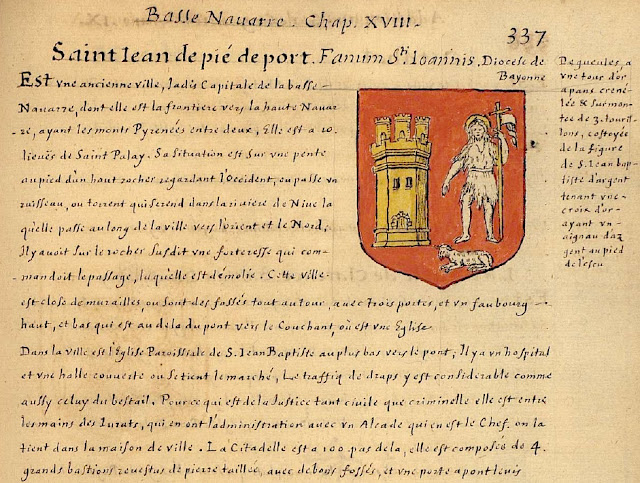 Basse Nauarre. Chap. XVIII.
337
Saint Iean de pié de port. Fanum Sti. Ioannis. Diocese de Bayonne
Est vne ancienne ville, Iadis Capitale de la basse
Nauarre, dont elle est la frontiere vers la haute Nauar-
re, ayant les monts Pyrenées entre deux, Elle est a 10.
lieuës de Saint Palay. Sa situation est sur vne pente
au pied d'un haut rocher regardant l'Occident, ou passe vn
ruisseau, ou torrent qui se rend dans la riuiere de Niue la
qu'elle passe au long de la ville vers l'orient et le Nord;
Il y auoit sur le rocher susdit vne forteresse qui com-
mandoit le passage, la quelle est démolie. Cette ville
est close de murailles, ou sont des fossés tout autour, auec trois portes, et vn faubourg
haut, et bas qui est au dela du pont vers le Couchant, où est vne Eglise
Dans la ville est l'Eglise Paroissiale de S. Iean Baptiste au plus bas vers le pont; Il y a vn hospital
et vne halle couuerte ou se tient le marché, Le traffiq de draps y est considerable comme
aussy celuy du bestail. Pour ce qui est de la Iustice tant ciuile que criminelle elle est entre
les mains des Iurats, qui en ont l'administration auec vn Alcade qui en est le Chef. on la
tient dans la maison de ville. La Citadelle est a 100. pas de la, elle est composée de 4.
grands bastions reuestus de pierre taillée, auec de bons fossés, et vne porte a pont leuis
De gueules, a
vne tour d'or
a pans crene-
lée & surmon-
tée de 3. touril-
lons, costoyée
de la figure
de S. Iean bap-
tiste d'argent
tenant vne
croix d'or
ayant vn
aignau d'ar
gent au pied
de l'escu